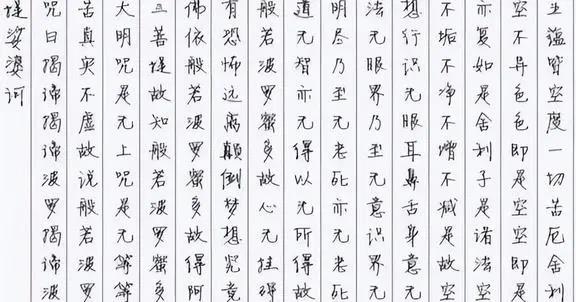 五蕴皆空度一切苦厄舍利
空不异色色即是空空即是
亦复如是舍利子是诸法空
不垢不净不增不减是故空
想行识无眼耳鼻舌身意无
法无眼界乃至无意识界无
明尽乃至无老死亦无老死
道无智亦无得以无所得故
般若波罗蜜多故心无挂碍
有恐怖远离颠倒梦想究竟
佛依般若波罗蜜多故得阿
三菩提故知般若波罗蜜多
大明咒是无上咒是无等等
苦真实不虚故说般若波罗
咒曰揭谛揭谛波罗揭谛波
提娑婆诃